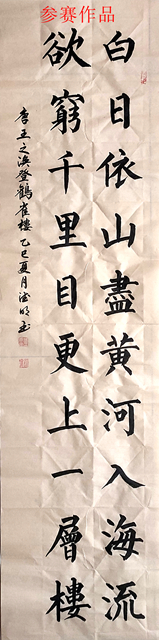 参赛作品
白日依山盡黄河入海流
欲窮千里目更上一層樓
李王之渙登鶴雀樓乙巳夏月